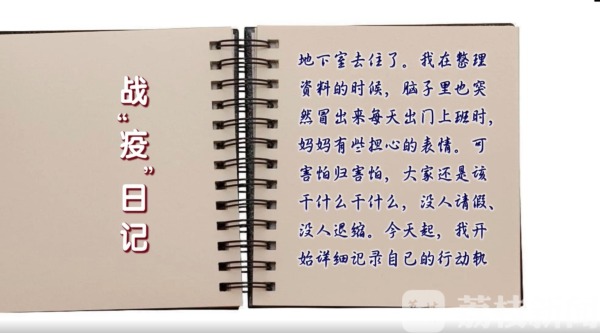 战“疫”日记
地下室去住了。我在整理
资料的时候，脑子里也突
然冒出来每天出门上班时，
妈妈有些担心的表情。可
害怕归害怕，大家还是该
干什么干什么，没人请假、
没人退缩。今天起，我开
始详细记录自己的行动轨
荔枝新闻